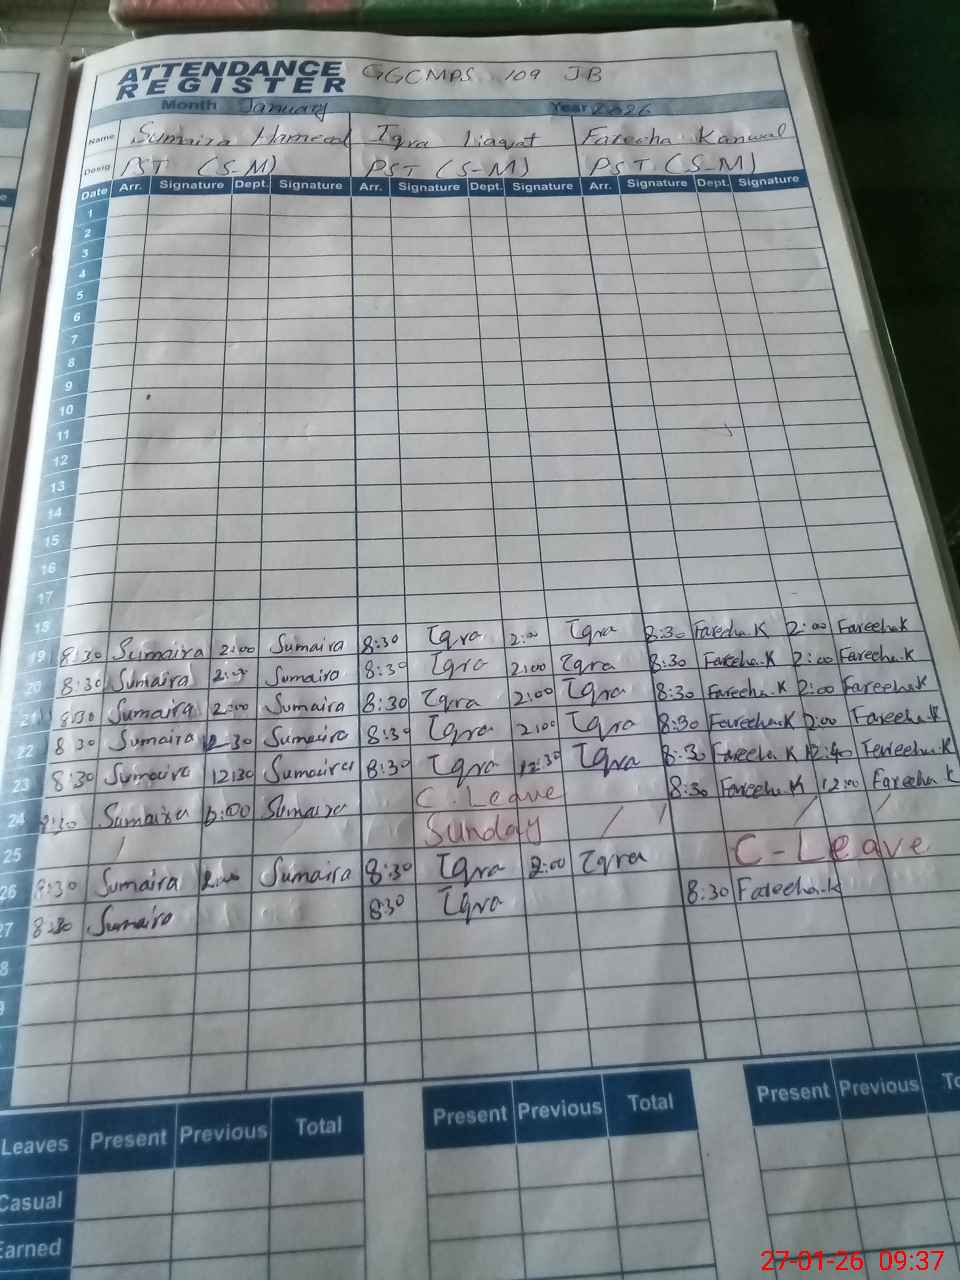 ATTENDANCE REGISTER GGCMPS 109 JB
Month January Year 2026
Name Sumaira Hameed Iqra Liaqat Fareeha Kanwal
Desig PST (S-M) PST (S-M) PST (S-M)
Date Arr. Signature Dept. Signature Arr. Signature Dept. Signature Arr. Signature Dept. Signature
1
2
3
4
5
6
7
8
9
10
11
12
13
14
15
16
17
18
19 8:30 Sumaira 2:00 Sumaira 8:30 Iqra 2:00 Iqra 8:30 Fareeha.K 2:00 Fareeha.K
20 8:30 Sumaira Sumaira 8:30 Iqra 2:00 Iqra 8:30 Fareeha.K 2:00 Fareeha.K
21 8:30 Sumaira 2:00 Sumaira 8:30 Iqra 2:00 Iqra 8:30 Fareeha.K 2:00 Fareeha.K
22 8:30 Sumaira 12:30 Sumaira 8:30 Iqra 2:00 Iqra 8:30 Fareeha.K 2:00 Fareeha.K
23 8:30 Sumaira 12:30 Sumaira 8:30 Iqra 12:30 Iqra 8:30 Fareeha.K 12:40 Fareeha.K
24 8:30 Sumaira Sumaira C. Leave 8:30 Fareeha.K 12:00 Fareeha.K
25 / Sunday / / / /
26 8:30 Sumaira 2:00 Sumaira 8:30 Iqra 2:00 Iqra C-Leave
27 8:30 Sumaira 8:30 Iqra 8:30 Fareeha.K
8
9
Leaves Present Previous Total Present Previous Total Present Previous
Casual
Earned
27-01-26 09:37